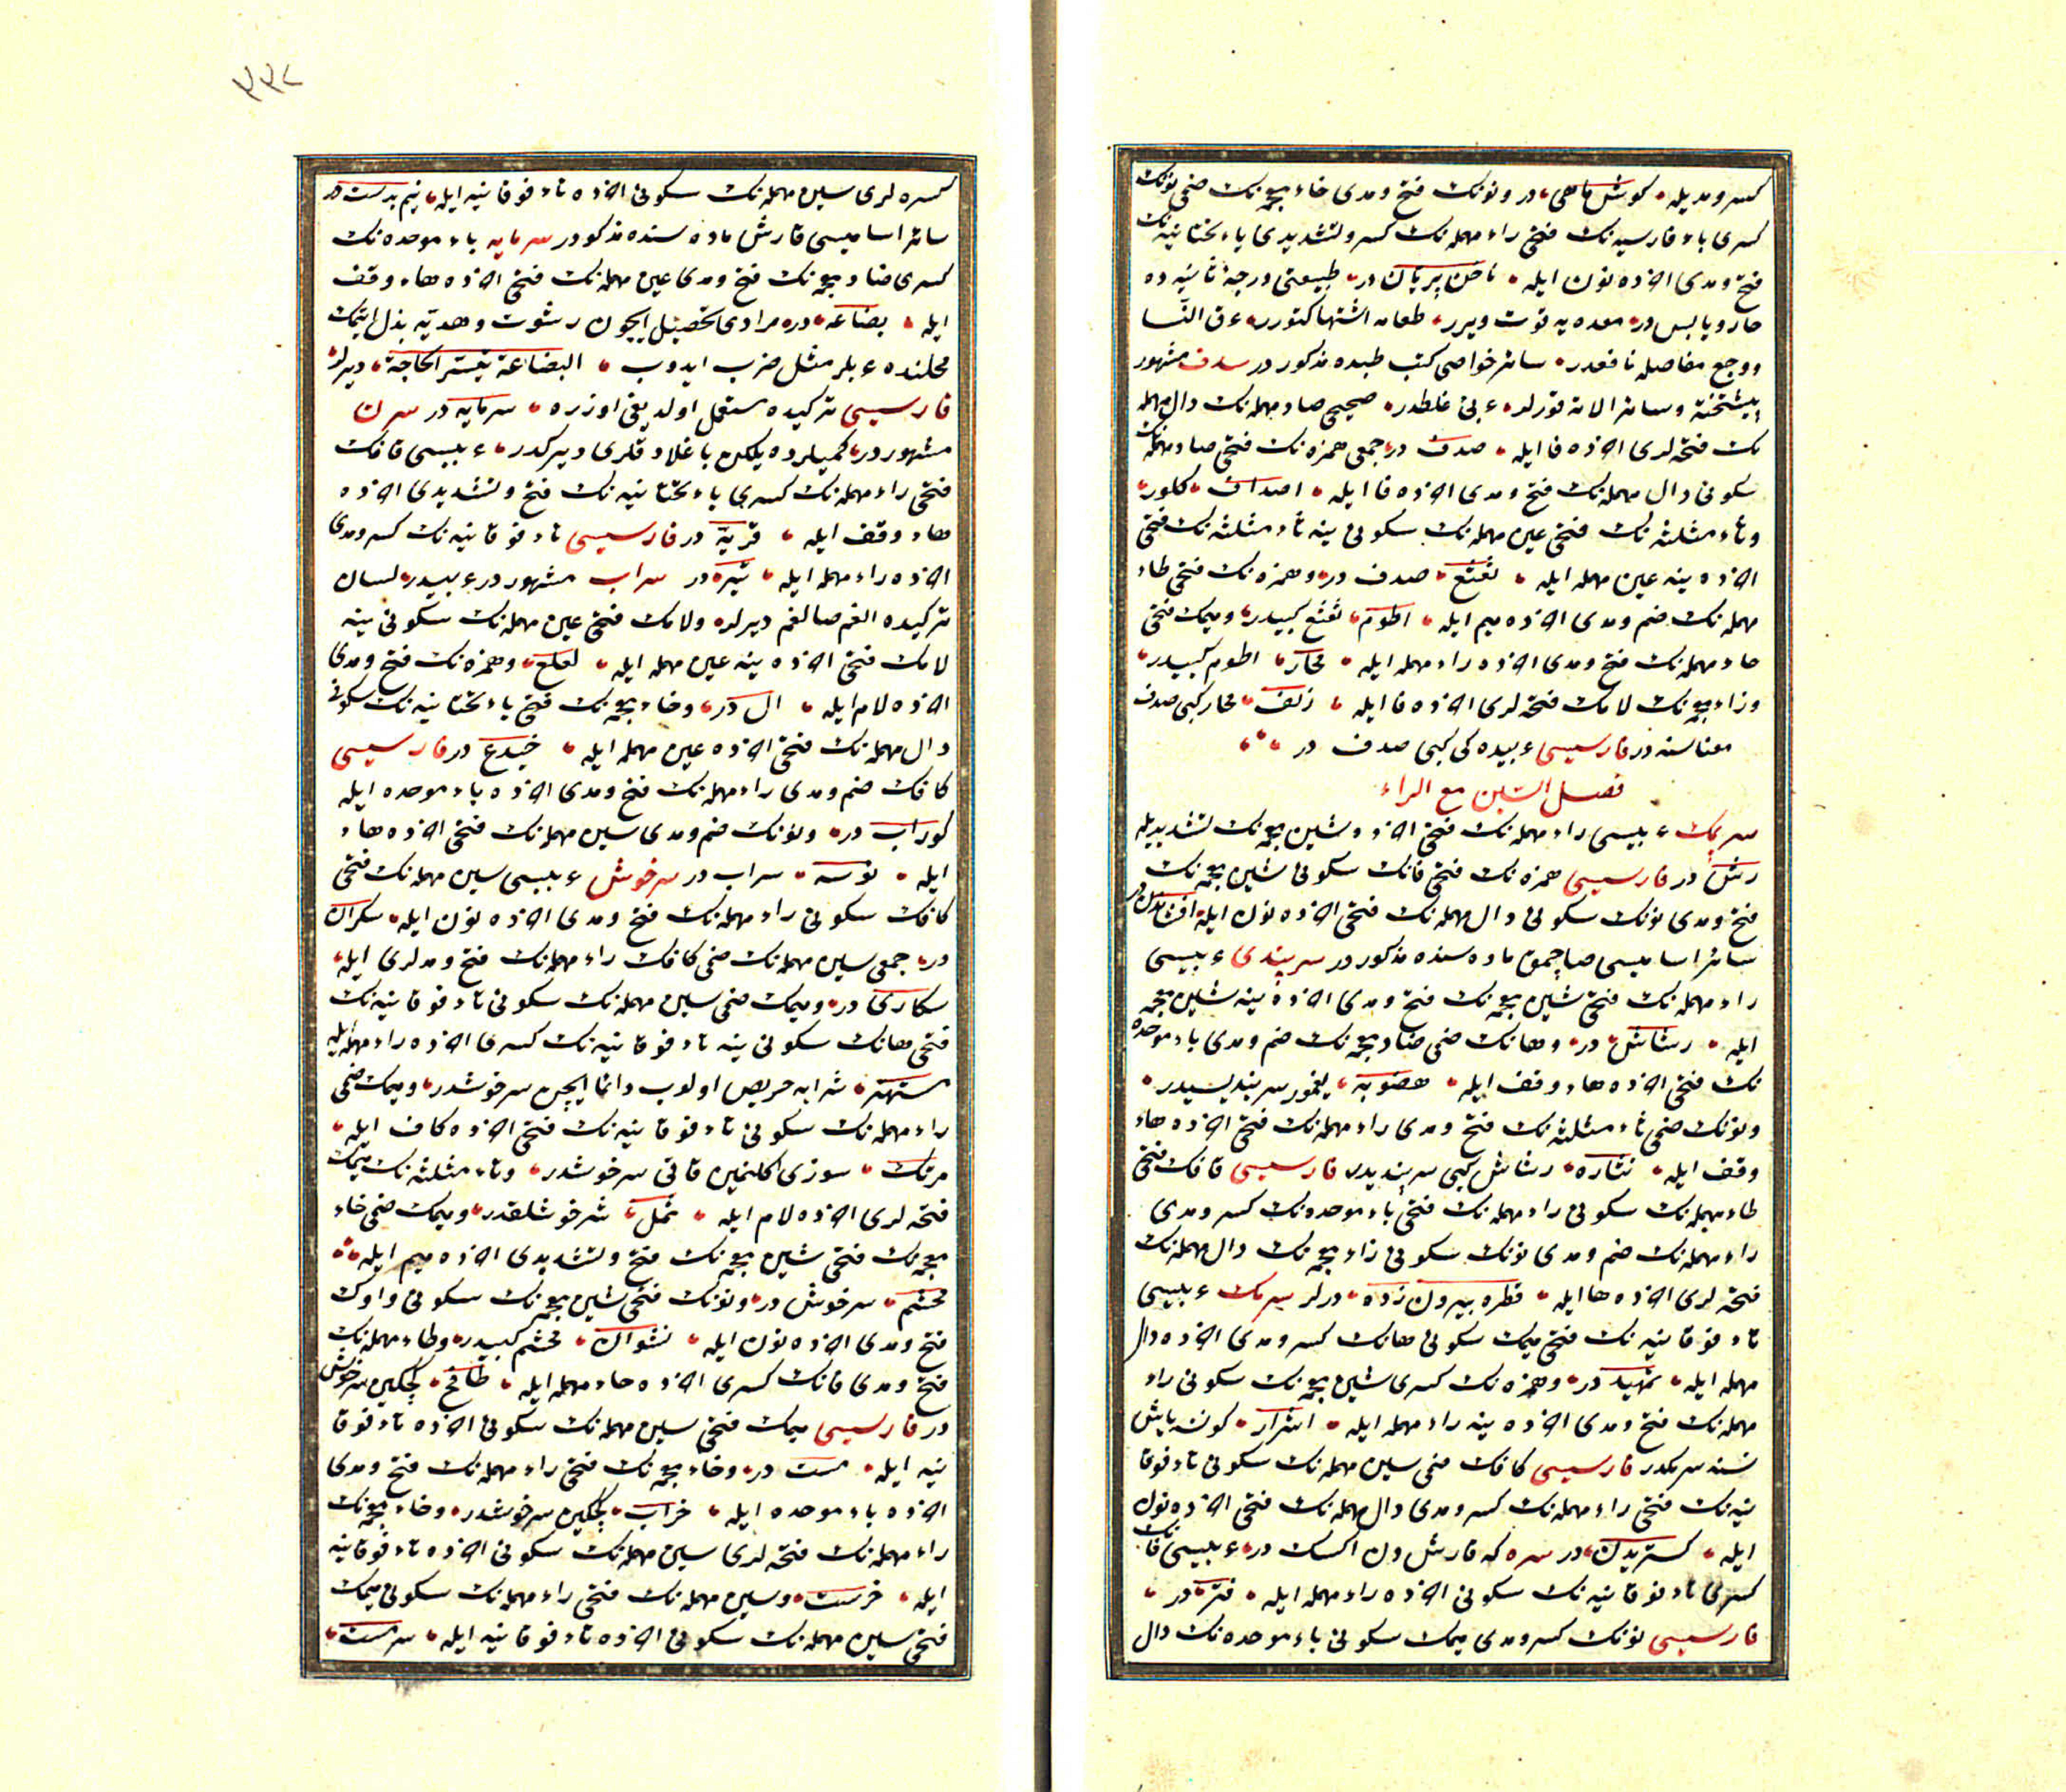 كسر و مدیله كوش ماهی در و نونك فتح و مدی خاء معجمه‌نك ضمی نونك
كسری باء فارسیه‌نك فتحی راء مهمله‌نك كسر و تشدیدی یاء تحتانیه‌نك
فتح و مدی اخرده نون ایله ناخن پریان در طبیعتی درجۀ ثانیه ده
حار و یابس در معده یه قوت ویرر طعامه اشتها كتورر عرق النسا
و وجع مفاصله نافعدر سائر خواصی كتب طبده مذكور در سدف مشهور
ایشتخته و سائر الاته قورلر عربی غلطدر صحیحی صاد مهمله‌نك دال مهمله
نك فتحه‌لری اخرده فا ایله صدف در جمعی همزه‌نك فتحی صاد مهمله‌نك
سكونی دال مهمله‌نك فتح و مدی اخرده فا ایله اصداف كلور
و ثاء مثلثه‌نك فتحی عین مهمله‌نك سكونی ینه ثاء مثلثه‌نك فتحی
اخرده ینه عین مهمله ایله ثعثع صدف در و همزه‌نك فتحی طاء
مهمله‌نك ضم و مدی اخرده میم ایله اطوم ثعثع كبیدر و میمك فتحی
حاء مهمله‌نك فتح و مدی اخرده راء مهمله ایله محار اطوم كبیدر
و زاء معجمه‌نك لامك فتحه‌لری اخرده فا ایله زلف محار كبی صدف
معناسنه در فارسیسی عربیده كی كبی صدف در
فصل السین مع الراء
سرپمك عربیسی راء مهمله‌نك فتحی اخرده شین معجمه‌نك تشدیدیله
رش در فارسیسی همزه‌نك فتحی فانك سكونی شین معجمه‌نك
فتح و مدی نونك سكونی دال مهمله‌نك فتحی اخرده نون ایله افشاندن در
سائر اسامیسی صاچمق ماده سنده مذكور در سرپندی عربیسی
راء مهمله‌نك فتحی شین معجمه‌نك فتح و مدی اخرده ینه شین معجمه
ایله رشاش در و هانك ضمی ضاد معجمه‌نك ضم و مدی باء موحده
نك فتحی اخرده هاء وقف ایله هضوبه یغمور سرپندیسیدر
و نونك ضمی ثاء مثلثه‌نك فتح و مدی راء مهمله‌نك فتحی اخرده هاء
وقف ایله نثاره رشاش كبی سرپندیدر فارسیسی قافك فتحی
طاء مهمله‌نك سكونی راء مهمله‌نك فتحی باء موحده‌نك كسر و مدی
راء مهمله‌نك ضم و مدی نونك سكونی زاء معجمه‌نك دال مهمله‌نك
فتحه‌لری اخرده ها ایله قطره بیرون زده درلر سرمك عربیسی
تاء فوقانیه‌نك فتحی میمك سكونی هانك كسر و مدی اخرده دال
مهمله ایله تمهید در و همزه‌نك كسری شین معجمه‌نك سكونی راء
مهمله‌نك فتح و مدی اخرده ینه راء مهمله ایله اشرار كونه یاش
نسنه سرمكدر فارسیسی كافك ضمی سین مهمله‌نك سكونی تاء فوقا
نیه‌نك فتحی راء مهمله‌نك كسر و مدی دال مهمله‌نك فتحی اخرده نون
ایله كستریدن در سره كه قارشدن اكسك در عربیسی فانك
كسری تاء فوقانیه‌نك سكونی اخرده راء مهمله ایله فتره در
فارسیسی نونك كسر و مدی میمك سكونی باء موحده‌نك دال
٣٣٢
كسره‌لری سین مهمله‌نك سكونی اخرده تاء فوقانیه ایله نیم بدست در
سائر اسامیسی قارش ماده سنده مذكور در سرمایه باء موحده‌نك
كسری ضاد معجمه‌نك فتح و مدی عین مهمله‌نك فتحی اخرده هاء وقف
ایله بضاعه در مرادی تحصیل ایچون رشوت و هدیه بذل ایتمك
محلنده عربلر مثل ضرب ایدوب البضاعة تیسر الحاجة دیرلر
فارسیسی تركیده مستعمل اولدیغی اوزره سرمایه در سرن
مشهور در كمیلرده یلكن باغلادقلری دیركدر عربیسی قافك
فتحی راء مهمله‌نك كسری یاء تحتانیه‌نك فتح و تشدیدی اخرده
هاء وقف ایله قریّه در فارسیسی تاء فوقانیه‌نك كسر و مدی
اخرده راء مهمله ایله تیره در سراب مشهور در عربیدر لسان
تركیده الغم صالغم دیرلر و لامك فتحی عین مهمله‌نك سكونی ینه
لامك فتحی اخرده ینه عین مهمله ایله لعلع و همزه‌نك فتح و مدی
اخرده لام ایله ال در و خاء معجمه‌نك فتحی یاء تحتانیه‌نك سكونی
دال مهمله‌نك فتحی اخرده عین مهمله ایله خیدع در فارسیسی
كافك ضم و مدی راء مهمله‌نك فتح و مدی اخرده باء موحده ایله
كوراب در و نونك ضم و مدی سین مهمله‌نك فتحی اخرده هاء
ایله نوسه سراب در سرخوش عربیسی سین مهمله‌نك فتحی
كافك سكونی راء مهمله‌نك فتح و مدی اخرده نون ایله سكران
در جمعی سین مهمله‌نك ضمی كافك راء مهمله‌نك فتح و مدلری ایله
سكاری در و میمك ضمی سین مهمله‌نك سكونی تاء فوقانیه‌نك
فتحی هانك سكونی ینه تاء فوقانیه‌نك كسری اخرده راء مهمله ایله
مستهتر شرابه حریص اولوب دائما ایچن سرخوشدر و میمك ضمی
راء مهمله‌نك سكونی تاء فوقانیه‌نك فتحی اخرده كاف ایله
مرتك سوزی اكلنمین قاتی سرخوشدر و ثاء مثلثه‌نك میمك
فتحه‌لری اخرده لام ایله ثمل سرخوشلقدر و میمك ضمی خاء
معجمه‌نك فتحی شین معجمه‌نك فتح و تشدیدی اخرده میم ایله
مخشم سرخوش در و نونك فتحی شین معجمه‌نك سكونی واوك
فتح و مدی اخرده نون ایله نشوان مخشم كبیدر و طاء مهمله‌نك
فتح و مدی فانك كسری اخرده حاء مهمله ایله طافح كچكین سرخوش
در فارسیسی میمك فتحی سین مهمله‌نك سكونی اخرده تاء فوقا
نیه ایله مست در و خاء معجمه‌نك فتحی راء مهمله‌نك فتح و مدی
اخرده باء موحده ایله خراب كچكین سرخوشدر و خاء معجمه‌نك
راء مهمله‌نك فتحه‌لری سین مهمله‌نك سكونی اخرده تاء فوقانیه
ایله خرست و سین مهمله‌نك فتحی راء مهمله‌نك سكونی میمك
فتحی سین مهمله‌نك سكونی اخرده تاء فوقانیه ایله سرمست